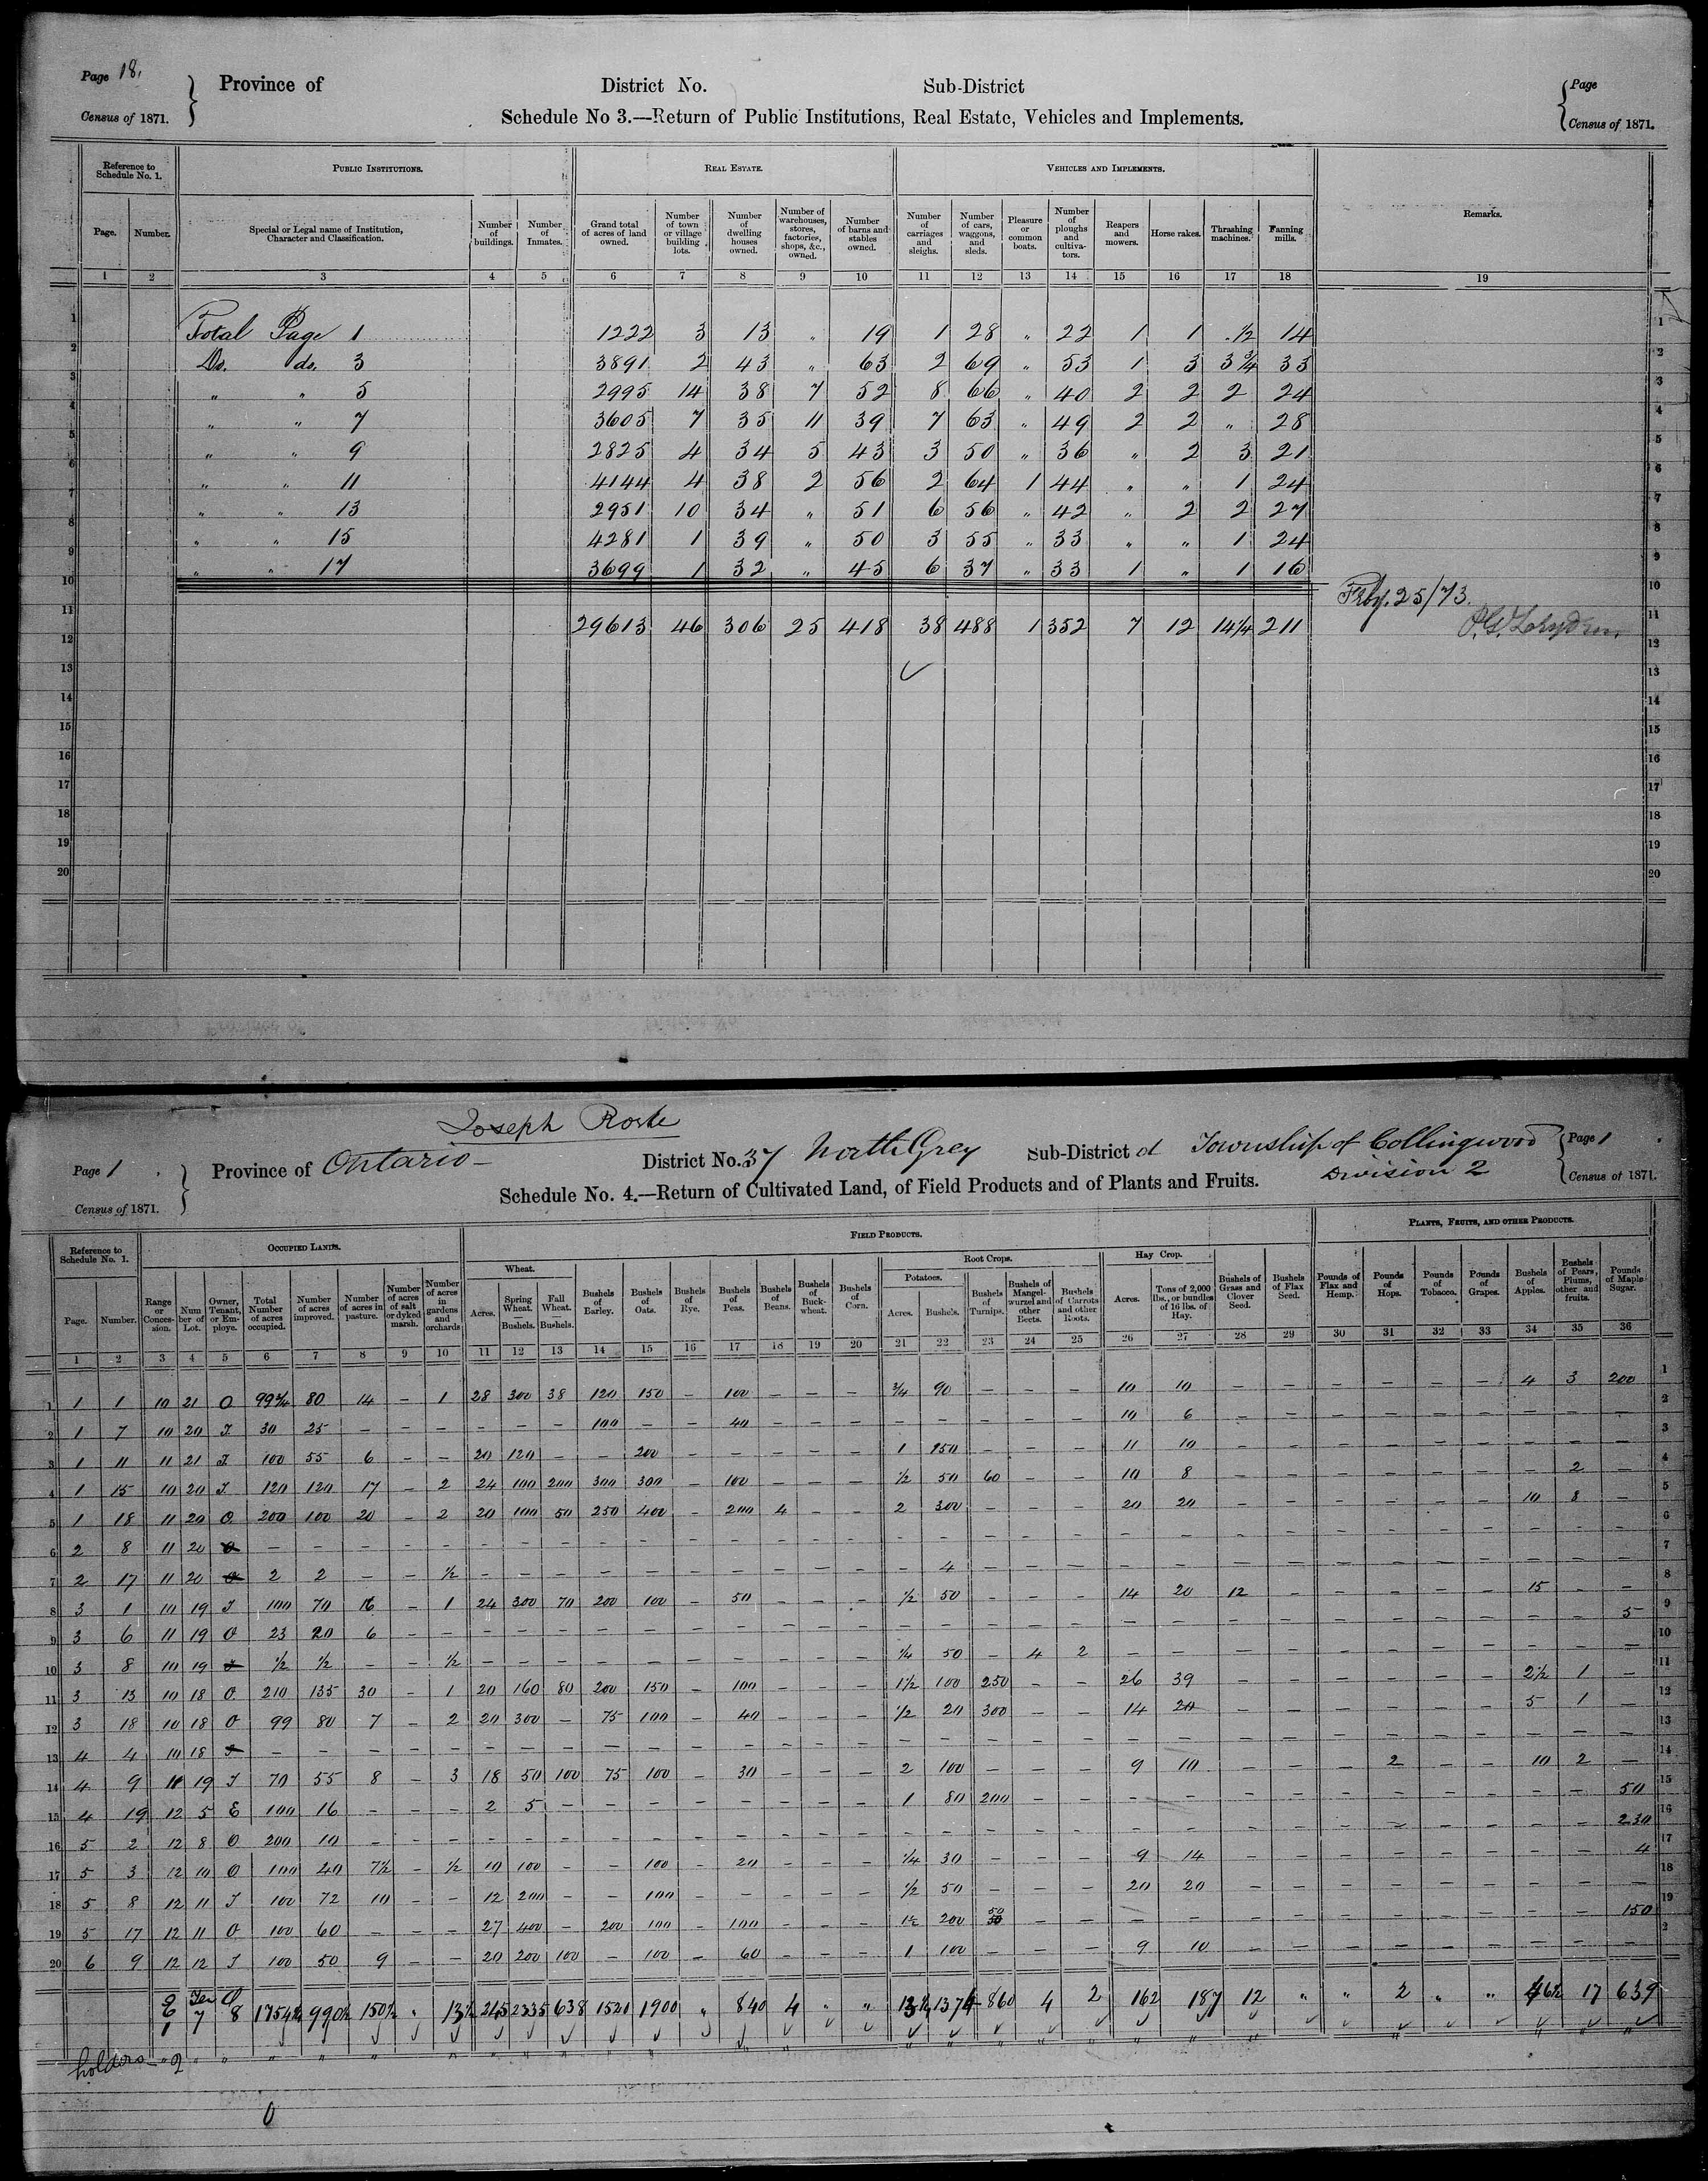 Page 18.
Province of
District No.
Sub-District
Page
Census of 1871.
Schedule No 3.—Return of Public Institutions, Real Estate, Vehicles and Implements.
Census of 1871.
Reference to Schedule No. 1.
PUBLIC INSTITUTIONS.
REAL ESTATE.
VEHICLES AND IMPLEMENTS.
Remarks.
Page. Number. Special or Legal name of Institution, Character and Classification. Number of buildings. Number of Inmates. Grand total of acres of land owned. Number of town or village building lots. Number of dwelling houses owned. Number of warehouses, stores, factories, shops, &c., owned. Number of barns and stables owned. Number of carriages and sleighs. Number of cars, waggons, and sleds. Pleasure or common boats. Number of ploughs and cultiva-tors. Reapers and mowers. Horse rakes. Thrashing machines. Fanning mills.
1 2 3 4 5 6 7 8 9 10 11 12 13 14 15 16 17 18 19
Total Page 1 1222 3 13 " 19 1 28 " 22 1 1 .½ 14
Do. do. 3 3891 2 43 " 63 2 69 " 53 1 3 3¾ 33
" " 5 2995 14 38 7 52 8 66 " 40 2 2 2 24
" " 7 3605 7 35 11 39 7 63 " 49 2 2 " 28
" " 9 2825 4 34 5 43 3 50 " 36 " 2 3 21
" " 11 4144 4 38 2 56 2 64 1 44 " " 1 24
" " 13 2951 10 34 " 51 6 56 " 42 " 2 2 27
" " 15 4281 1 39 " 50 3 55 " 33 " " 1 24
" " 17 3699 1 32 " 45 6 37 " 33 1 " 1 16
Feby. 25/73.
29613 46 306 25 418 38 488 1 352 7 12 14¼ 211
Joseph Rorke
Page 1
Province of Ontario
District No. 37 North Grey
Sub-District d Township of Collingwood
Division 2
Page 1
Census of 1871.
Schedule No. 4.—Return of Cultivated Land, of Field Products and of Plants and Fruits.
Census of 1871.
Reference to Schedule No. 1.
OCCUPIED LANDS.
FIELD PRODUCTS.
PLANTS, FRUITS, AND OTHER PRODUCTS.
Wheat.
Root Crops.
Potatoes.
Hay Crop.
Page. Number. Range or Conces-sion. Num ber of Lot. Owner, Tenant, or Em-ploye. Total Number of acres occupied. Number of acres improved. Number of acres in pasture. Number of acres of salt or dyked marsh. Number of acres in gardens and orchards Acres. Spring Wheat. — Bushels. Fall Wheat. — Bushels. Bushels of Barley. Bushels of Oats. Bushels of Rye. Bushels of Peas. Bushels of Beans. Bushels of Buck-wheat. Bushels of Corn. Acres. Bushels. Bushels of Turnips. Bushels of Mangel-wurzel and other Beets. Bushels of Carrots and other Roots. Acres. Tons of 2,000 lbs., or bundles of 16 lbs. of Hay. Bushels of Grass and Clover Seed. Bushels of Flax Seed. Pounds of Flax and Hemp. Pounds of Hops. Pounds of Tobacco. Pounds of Grapes. Bushels of Apples. Bushels of Pears, Plums, other and fruits. Pounds of Maple Sugar.
1 2 3 4 5 6 7 8 9 10 11 12 13 14 15 16 17 18 19 20 21 22 23 24 25 26 27 28 29 30 31 32 33 34 35 36
1 1 1 10 21 O 99¾ 80 14 – 1 28 300 38 120 150 – 100 – – – ¾ 90 – – – 10 10 – – – – – – 4 3 200
2 1 7 10 20 T 30 25 – – – – – – 100 – – 40 – – – – – – – – 10 6 – – – – – – – – –
3 1 11 11 21 T 100 55 6 – – 20 120 – – 200 – – – – – 1 150 – – – 11 10 – – – – – – – – –
4 1 15 10 20 T 120 120 17 – 2 24 100 200 300 300 – 100 – – – ½ 50 60 – – 10 8 – – – – – – – 2 –
5 1 18 11 20 O 200 100 20 – 2 20 100 50 250 400 – 200 4 – – 2 300 – – – 20 20 – – – – – – 10 8 –
6 2 8 11 20 O – – – – – – – – – – – – – – – – – – – – – – – – – – – – – – –
7 2 17 11 20 O 2 2 – – ½ – – – – – – – – – – – 4 – – – – – – – – – – – – – –
8 3 1 10 19 T 100 70 16 – 1 24 300 70 200 100 – 50 – – – ½ 50 – – – 14 20 12 – – – – – 15 – –
9 3 6 11 19 O 23 20 6 – – – – – – – – – – – – – – – – – – – – – – – – – – – 5
10 3 8 10 19 T ½ ½ – – ½ – – – – – – – – – – ¼ 50 – 4 2 – – – – – – – – – – –
11 3 13 10 18 O 210 135 30 – 1 20 160 80 200 150 – 100 – – – 1½ 100 250 – – 26 39 – – – – – – 2½ 1 –
12 3 18 10 18 O 99 80 7 – 2 20 300 – 75 100 – 40 – – – ½ 20 300 – – 14 20 – – – – – – 5 1 –
13 4 4 10 18 T – – – – – – – – – – – – – – – – – – – – – – – – – – – – – – –
14 4 9 11 19 T 70 55 8 – 3 18 50 100 75 100 – 30 – – – 2 100 – – – 9 10 – – – 2 – – 10 2 –
15 4 19 12 5 E 100 16 – – – 2 5 – – – – – – – – 1 80 200 – – – – – – – – – – – – 50
16 5 2 12 8 O 200 10 – – – – – – – – – – – – – – – – – – – – – – – – – – – – 230
17 5 3 12 10 O 100 40 7½ – ½ 10 100 – – 100 – 20 – – – ¼ 30 – – – 9 14 – – – – – – – – 4
18 5 8 12 11 T 100 72 10 – – 12 200 – – 100 – – – – – ½ 50 – – – 20 20 – – – – – – – – –
19 5 17 12 11 O 100 60 – – – 27 400 – 200 100 – 100 – – – 1½ 200 50 – – – – – – – – – – – – 150
20 6 9 12 12 T 100 50 9 – – 20 200 100 – 100 – 60 – – – 1 100 – – – 9 10 – – – – – – – – –
Ten O
7 8 1754¼ 990½ 150½ " 13½ 245 2335 638 1520 1900 " 840 4 " " 13¼ 1374 860 4 2 162 187 12 " " 2 " " 46½ 17 639
holders
0